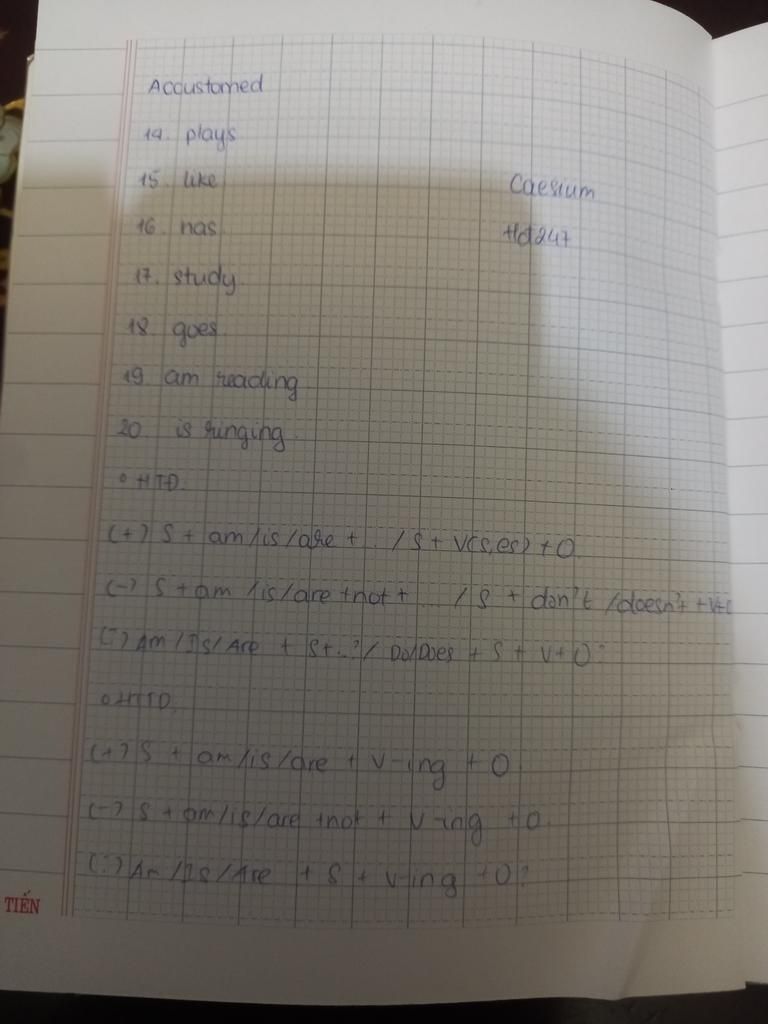 Accustomed
14. plays
15. like
Caesium
16. has
17. study
18. goes
19. am reading
20. is ringing.
o HTĐ.
(+) S + am/is/are + ... / S + V(s,es) + O
(-) S + am /is/are +not + ... / S + don't /doesn't + V+O
(?) Am / Is/ Are + S+..?/ Do/Does + S + V+O?
o HTTD.
(+) S + am/is/are + V-ing + O
(-) S + am/is/are +not + V-ing +O
(?) Am /Is/Are + S + V-ing +O?
TIẾN